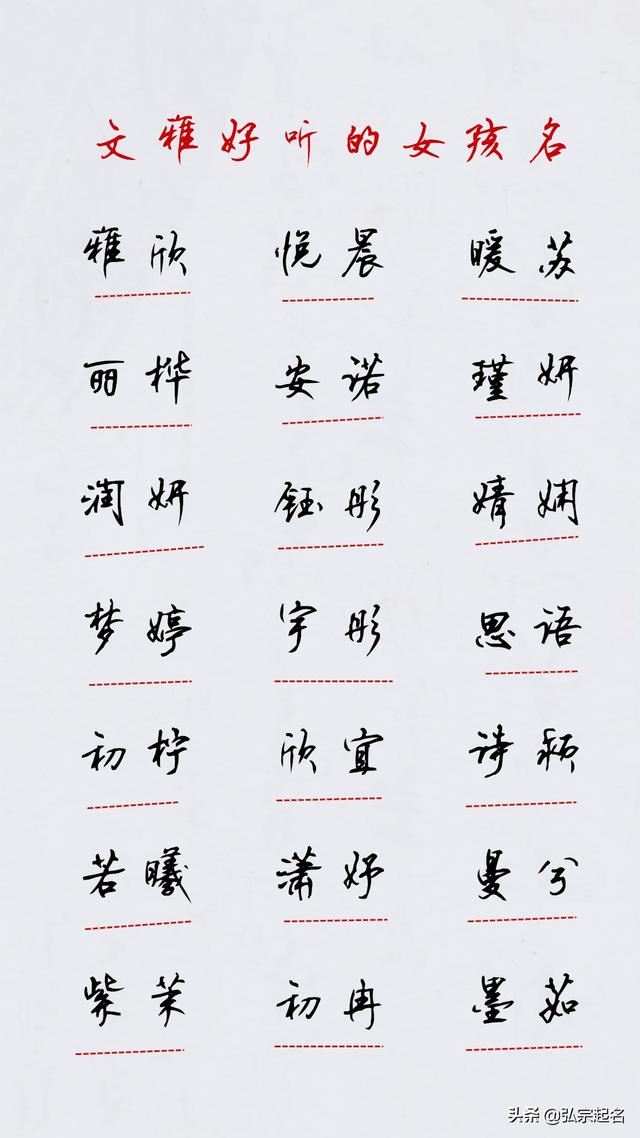 文雅好听的女孩名
雅欣 悦晨 暖苏
丽桦 安诺 瑾妍
润妍 钰彤 婧娴
梦婷 宇彤 思语
初柠 欣宜 诗颖
若曦 潇妤 曼兮
紫茉 初冉 墨茹
头条 @弘宗起名